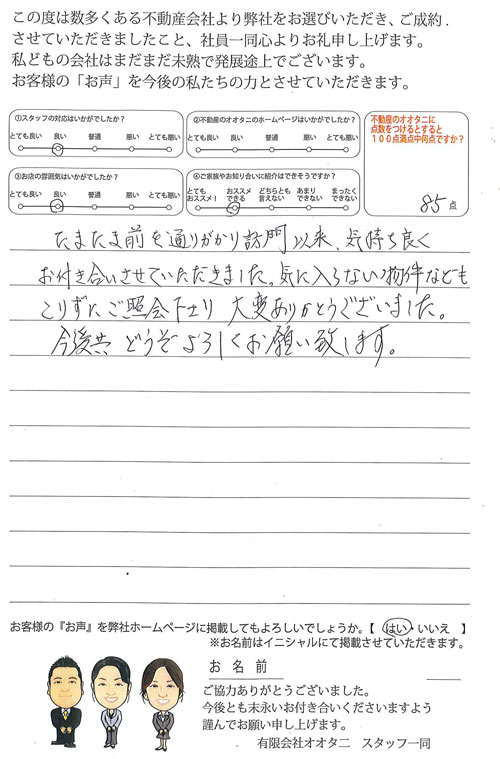 この度は数多くある不動産会社より弊社をお選びいただき、ご成約.
させていただきましたこと、社員一同心よりお礼申し上げます。
私どもの会社はまだまだ未熟で発展途上でございます。
お客様の「お声」を今後の私たちの力とさせていただきます。
①スタッフの対応はいかがでしたか?
とても良い 良い 普通 悪い とても悪い
②不動産のオオタニのホームページはいかがでしたか?
とても良い 良い 普通 悪い とても悪い
③お店の雰囲気はいかがでしたか?
とても良い 良い 普通 悪い とても悪い
④ご家族やお知り合いに紹介はできそうですか?
とても オススメ どちらとも あまり まったく
おススメ! できる 言えない できない できない
不動産のオオタニに
点数をつけるとすると
100点満点中何点ですか?
85 点
たまたま前を通りがかり訪問以来、気持ち良く
お付き合いさせていただきました。気に入らない物件なども
こりずにご照会下さり 大変ありがとうございました。
今後共 どうぞよろしくお願い致します。
お客様の『お声』を弊社ホームページに掲載してもよろしいでしょうか。【 はい・いいえ 】
※お名前はイニシャルにて掲載させていただきます。
お 名 前
ご協力ありがとうございました。
今後とも末永いお付き合いくださいますよう
謹んでお願い申し上げます。
有限会社オオタニ スタッフ一同